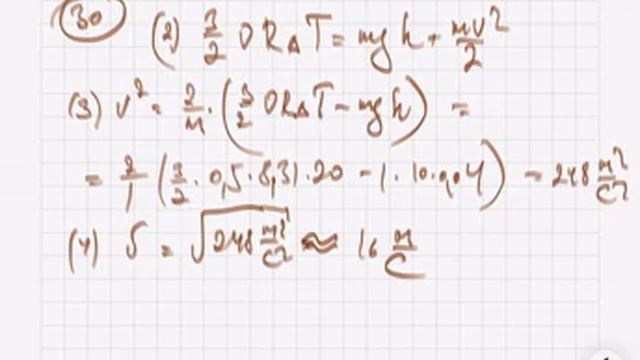 (30) (2) 3/2 𝜈RΔT = mgh + mv²/2
(3) v² = 2/m · (3/2 𝜈RΔT - mgh) =
= 2/1 (3/2 · 0,5 · 8,31 · 20 - 1 · 10 · 0,04) = 248 м²/с²
(4) v = √(248 м²/с²) ≈ 16 м/с